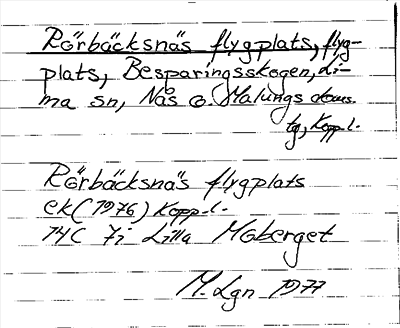 Rörbäcksnäs flygplats, flyg-
plats, Besparingsskogen, Li-
ma sn, Nås o. Malungs doms.
tg, Kopp.l.
Rörbäcksnäs flygplats
ek (1976) Kopp.l.
14C 7i Lilla Moberget
M. Lgn 1977